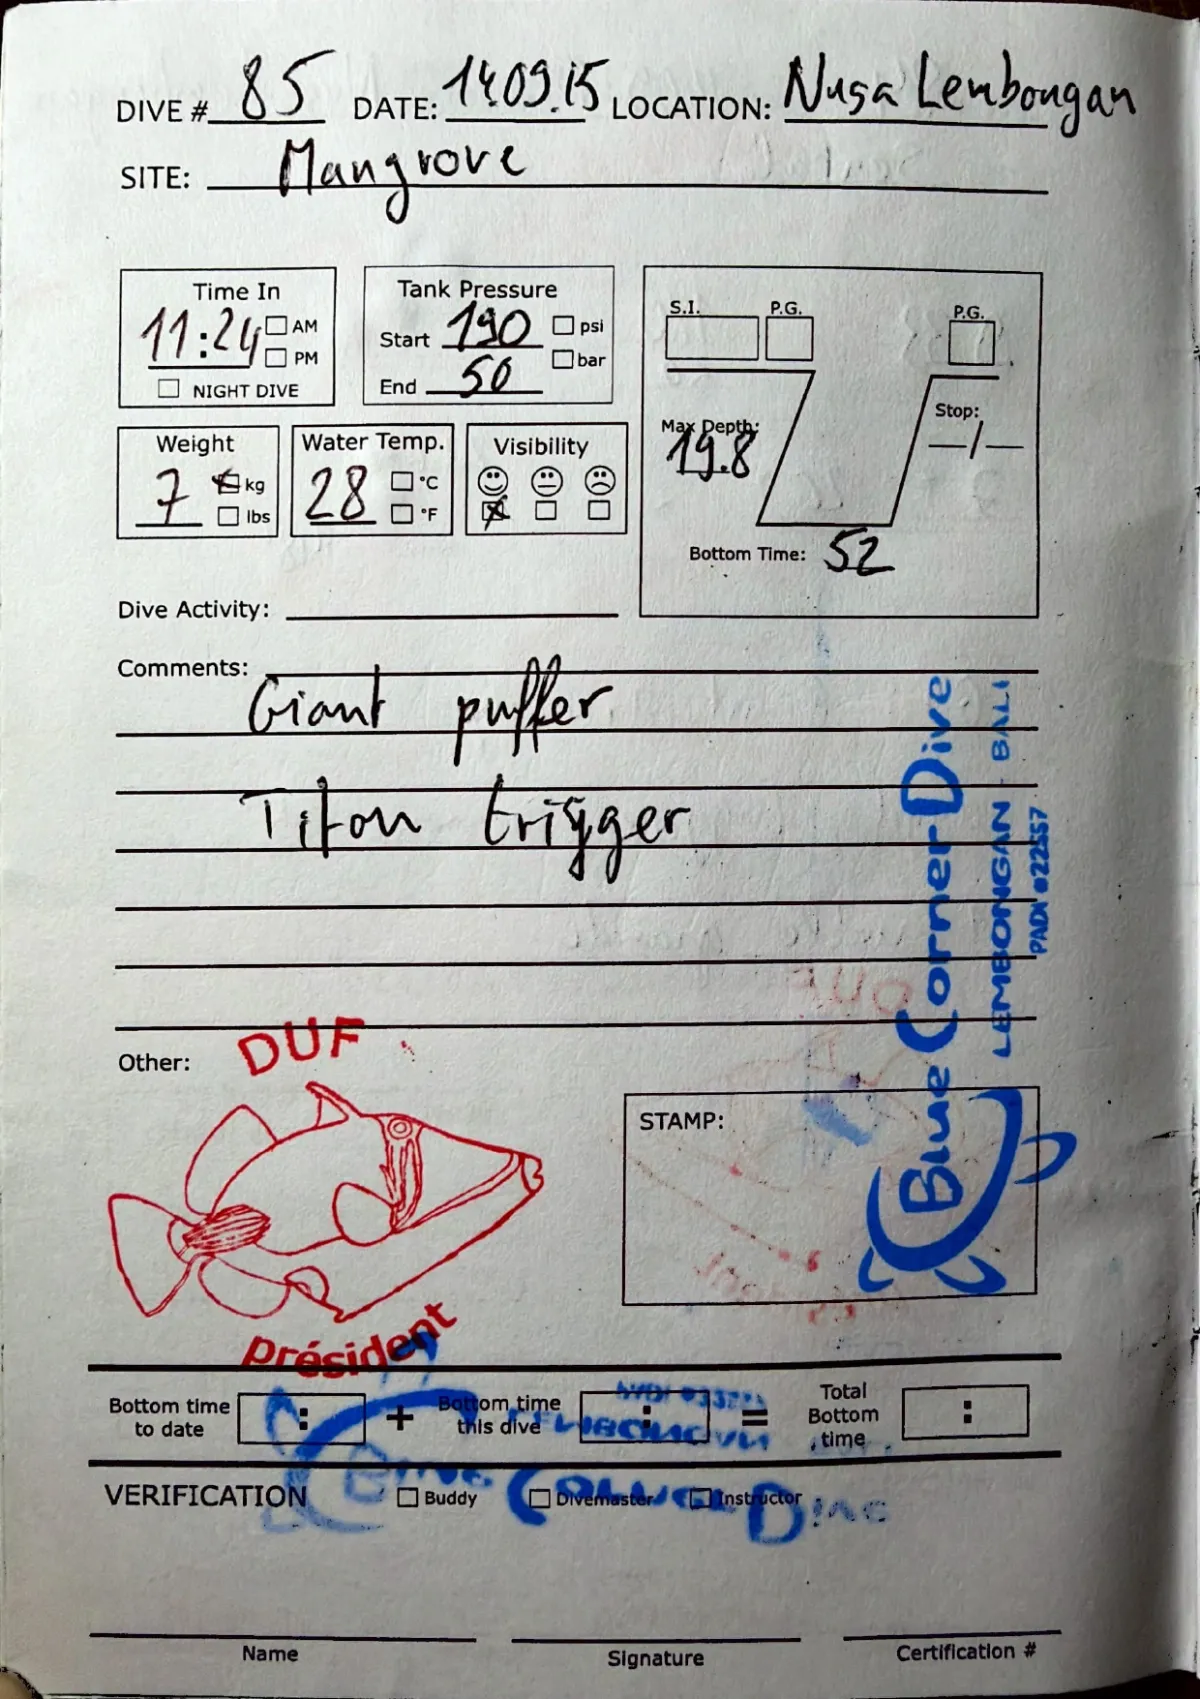 DIVE # 85 DATE: 14.09.15 LOCATION: Nusa Lembongan
SITE: Mangrove
Time In
11:24 AM
PM
NIGHT DIVE
Tank Pressure
Start 190 psi
bar
End 50
S.I. P.G. P.G.
Max Depth:
19.8
Stop:
—/—
Bottom Time: 52
Weight
7 kg
lbs
Water Temp.
28 °C
°F
Visibility
Dive Activity:
Comments:
Giant puffer
Titan trigger
Blue Corner Dive
LEMBONGAN - BALI
PADI #22557
Other:
DUF
président
STAMP:
Bottom time
to date
:
+
Bottom time
this dive
:
=
Total
Bottom
time
:
LEMBONGAN
Blue Corner Dive
VERIFICATION Buddy Divemaster Instructor
Name Signature Certification #